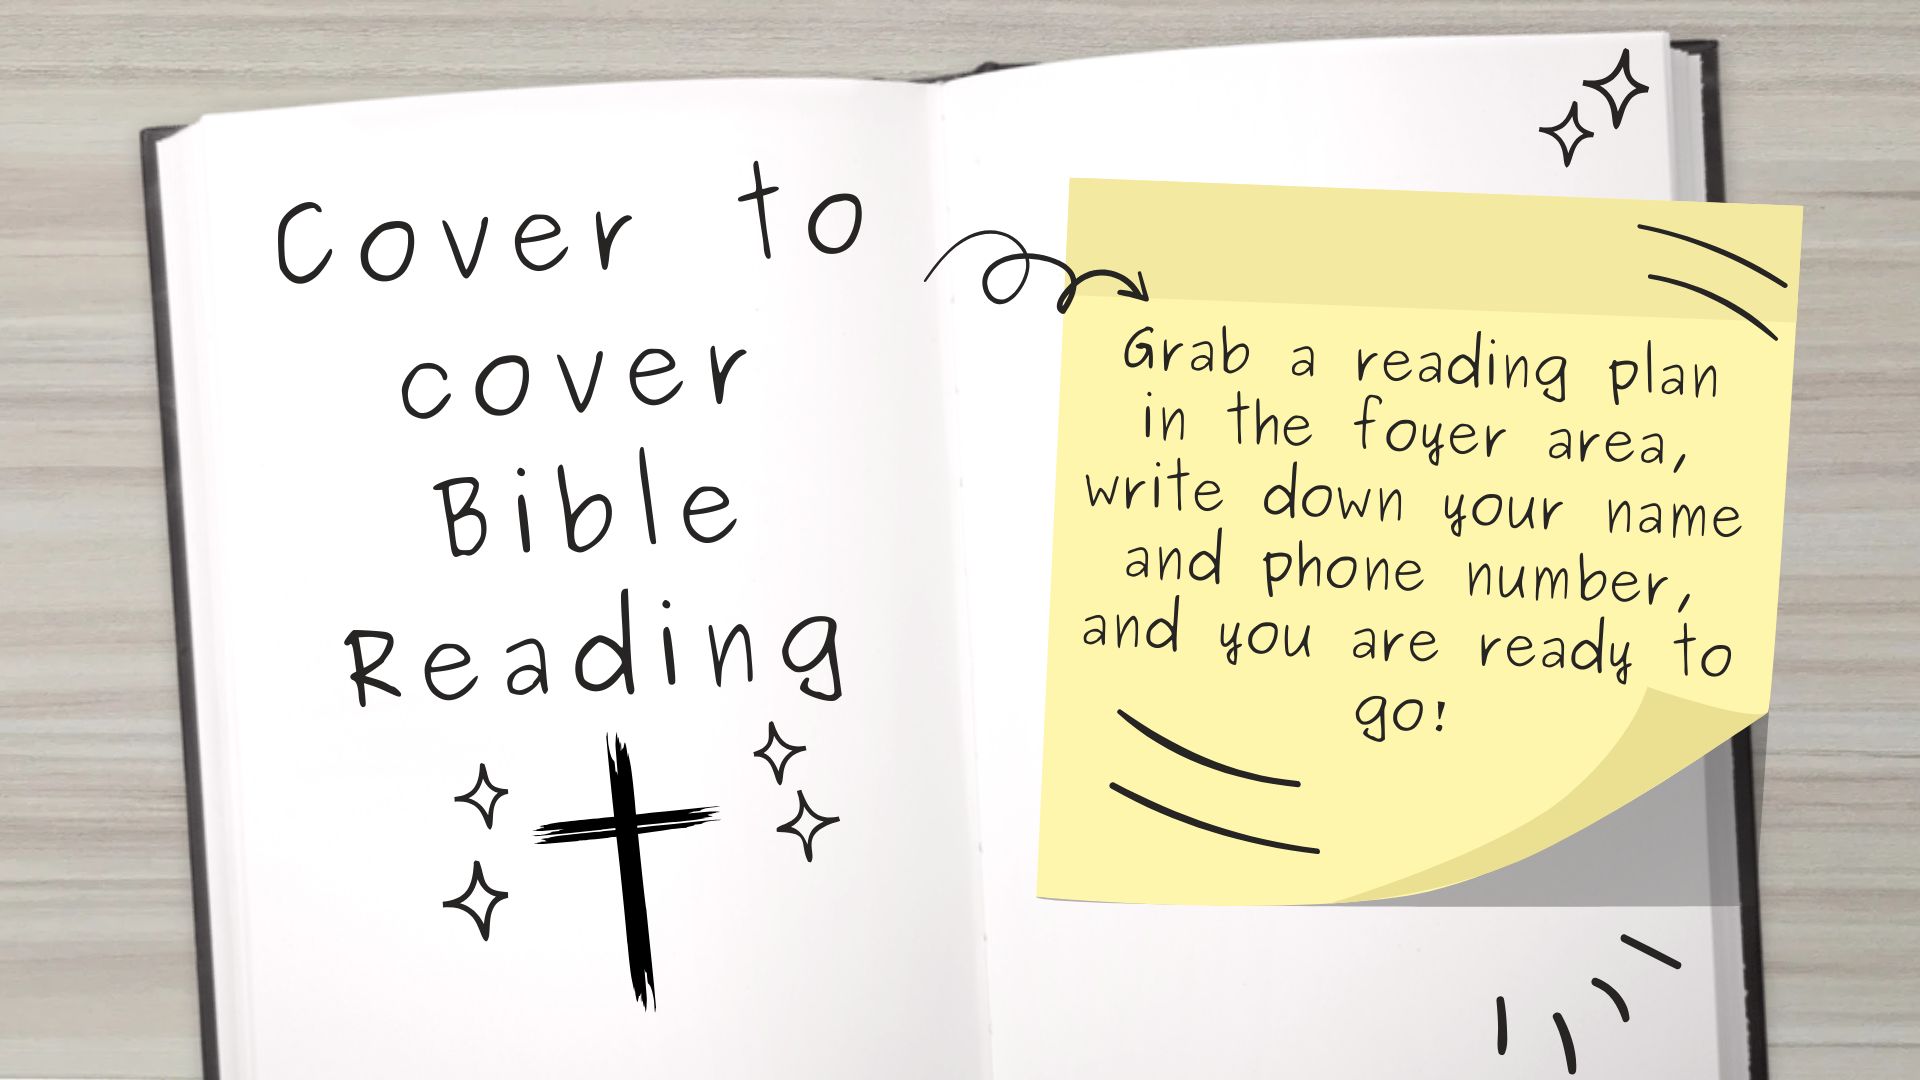 Cover to
cover
Bible
Reading
Grab a reading plan
in the foyer area,
write down your name
and phone number,
and you are ready to
go!